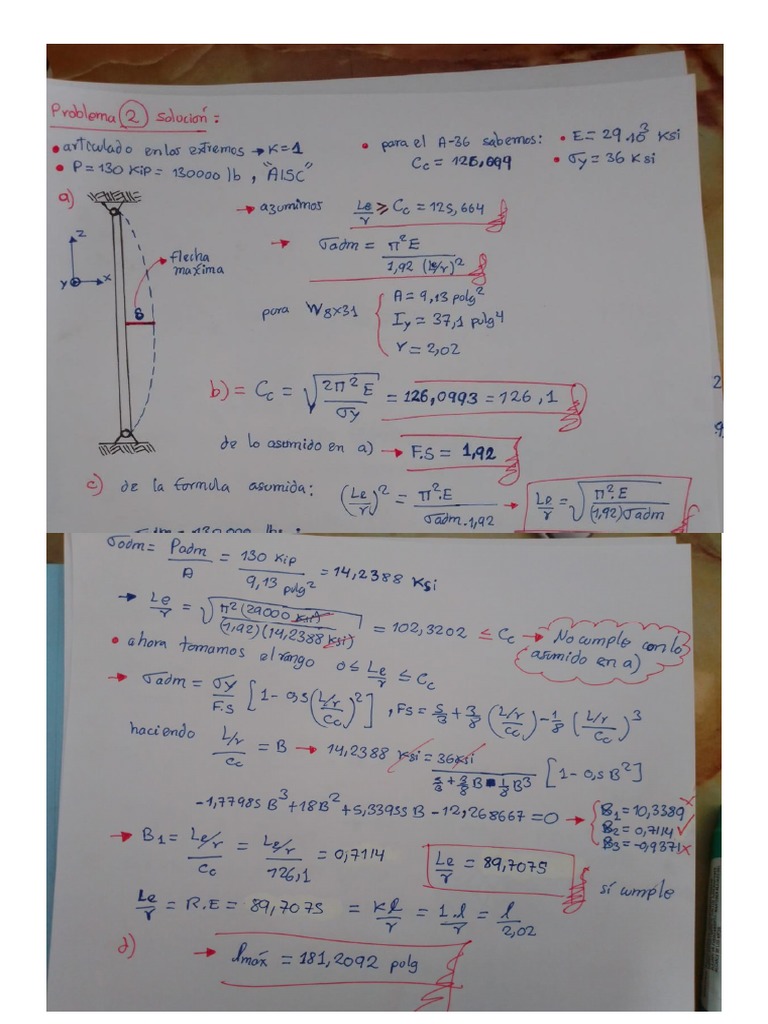 Problema 2 solución:
• articulado en los extremos → K=1
• P=130 KiP = 130000 lb, "AISC"
• para el A-36 sabemos:
Cc = 126,099
• E = 29·10³ Ksi
• σy = 36 Ksi
a)
→ azumimos Le/r ≥ Cc = 125,664
→ σadm = π²E / 1,92 (le/r)²
z
x
y
δ
flecha maxíma
para W8x31 { A = 9,13 polg²
Iy = 37,1 pulg⁴
r = 2,02
b) = Cc = √(2π²E / σy) = 126,0993 = 126,1
de lo asumido en a) → F.S = 1,92
c) de la formula asumida: (Le/r)² = π².E / σadm.1,92 → Le/r = √(π².E / (1,92)σadm)
2
9
σadm = Padm / A = 130 Kip / 9,13 pulg² = 14,2388 Ksi
→ Le/r = √(π²(29000 Ksi) / (1,92)(14,2388 Ksi)) = 102,3202 ≤ Cc → No cumple con lo asumido en a)
• ahora tomamos el rango 0 ≤ Le/r ≤ Cc
→ σadm = σy / F.S [1-0,5((L/r)/Cc)²], Fs = 5/3 + 3/8 ((L/r)/Cc) - 1/8 ((L/r)/Cc)³
haciendo (L/r)/Cc = B → 14,2388 Ksi = 36Ksi / (5/3 + 3/8 B - 1/8 B³) [1-0,5B²]
-1,77985 B³ + 18B² + 5,33955 B - 12,268667 = 0 → { B1 = 10,3389 x
B2 = 0,7114 ✓
B3 = -0,9371 x
→ B1 = (Le/r)/Cc = (Le/r)/126,1 = 0,7114
Le/r = 89,7075
sí cumple
Le/r = R.E = 89,7075 = Kl/r = 1.l/r = l/2,02
d) → lmáx = 181,2092 polg